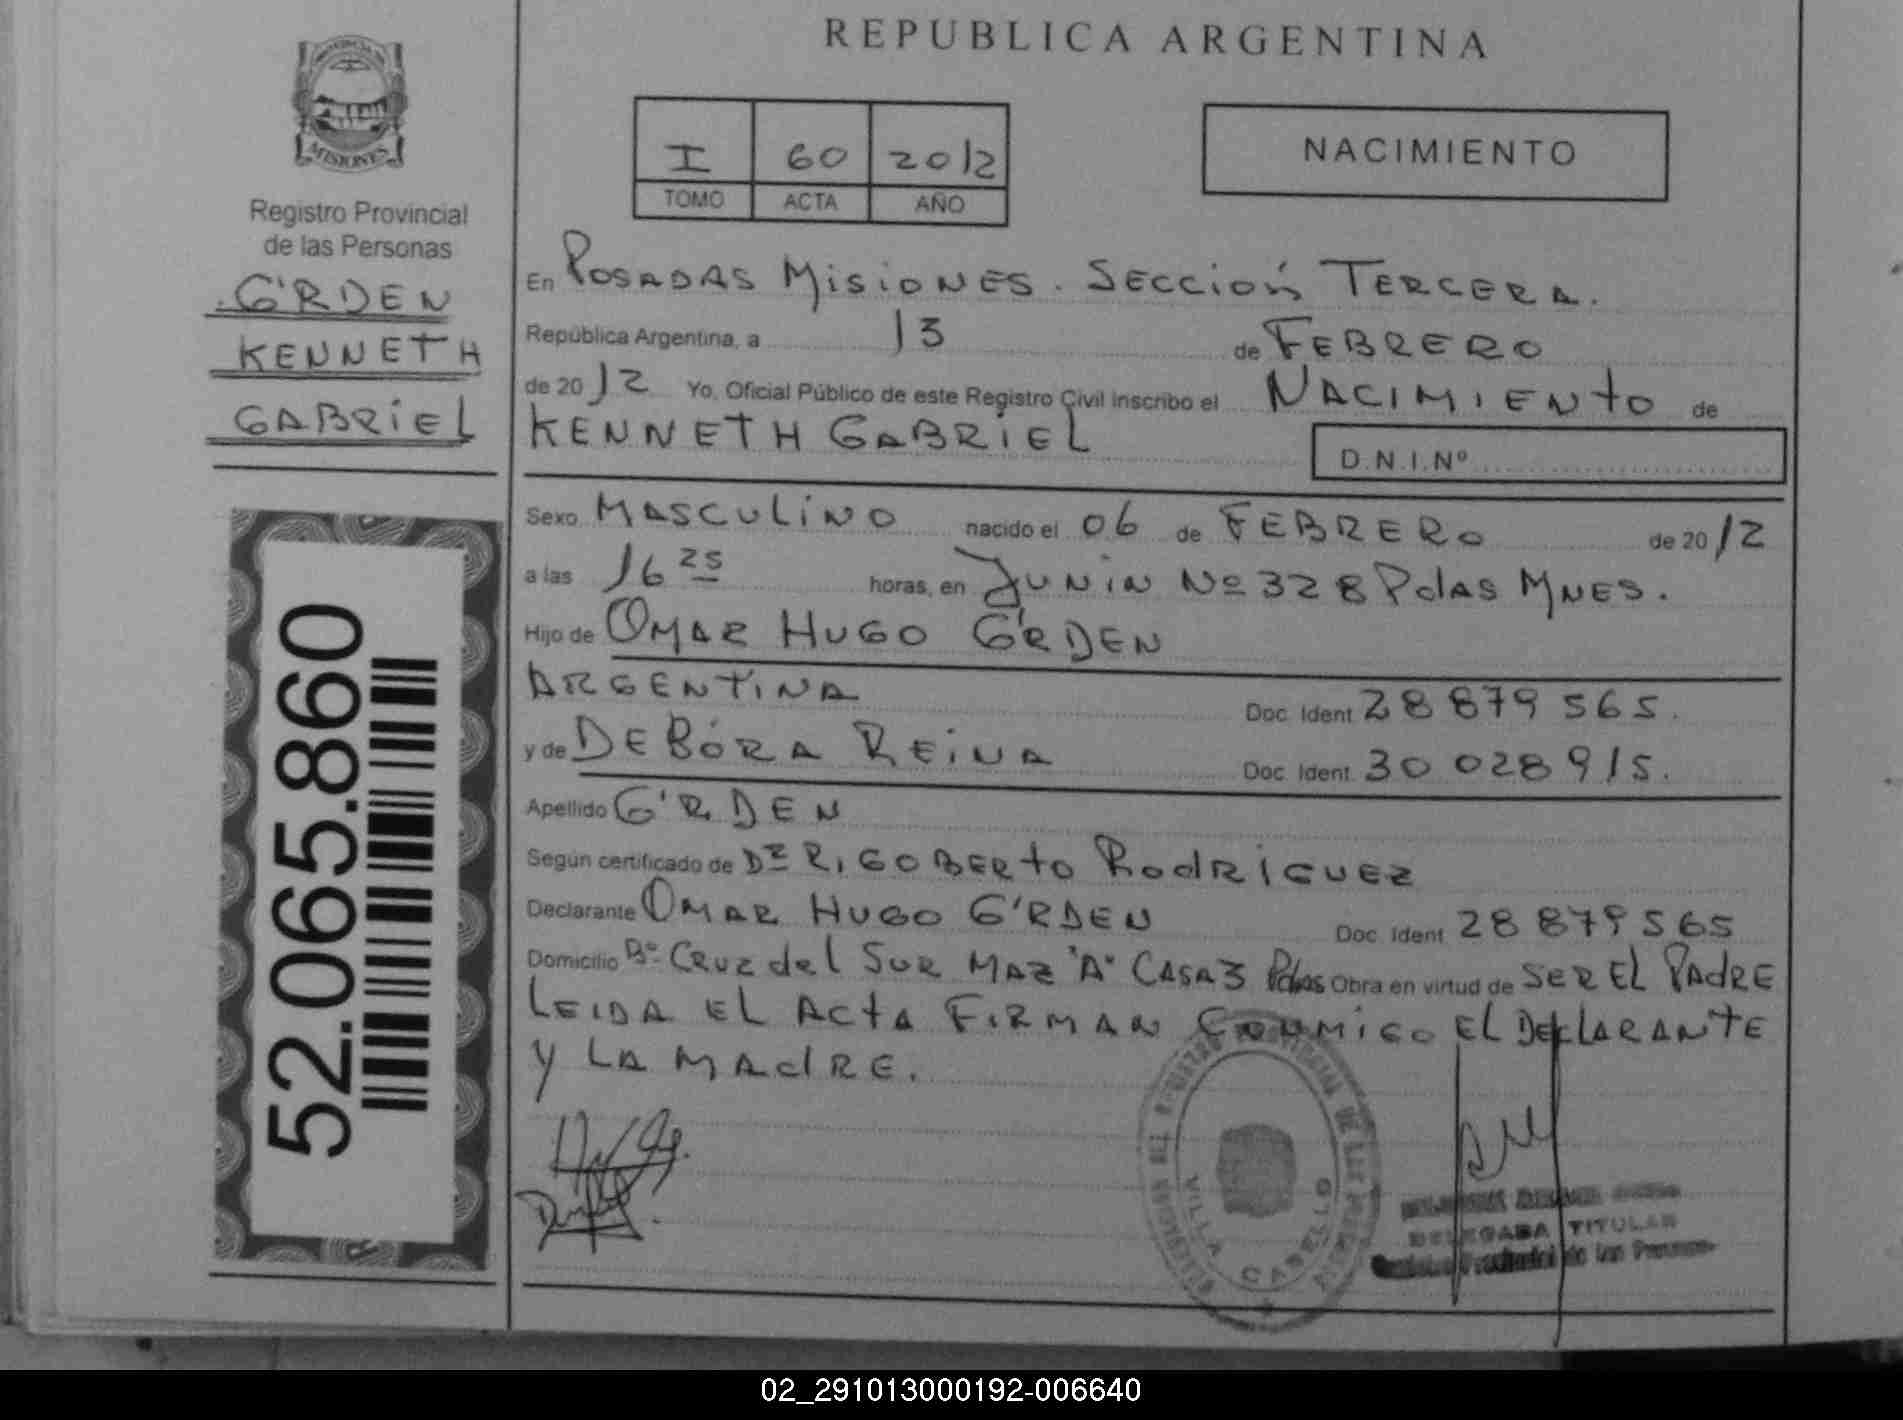 REPUBLICA ARGENTINA
MISIONES
Registro Provincial
de las Personas
G'RDEN
KENNETH
GABRIEL
52.065.860
I 60 2012
TOMO ACTA AÑO
NACIMIENTO
En POSADAS MISIONES. SECCIÓN TERCERA.
República Argentina, a 13 de FEBRERO
de 2012 Yo, Oficial Público de este Registro Civil inscribo el NACIMIENTO de
KENNETH GABRIEL D.N.I.Nº
Sexo MASCULINO nacido el 06 de FEBRERO de 2012
a las 16 25 horas, en JUNIN Nº 328 PdAS MNES.
Hijo de OMAR HUGO G'RDEN
ARGENTINA Doc. Ident 28 879 565.
y de DEBÓRA REINA Doc. Ident. 30 028 915.
Apellido G'RDEN
Según certificado de DR RIGOBERTO RODRIGUEZ
Declarante OMAR HUGO G'RDEN Doc. Ident 28 879 565
Domicilio Bº CRUZ del SUR MAZ "A" CASA 3 Pdas Obra en virtud de SER EL PADRE
LEIDA EL ACTA FIRMAN CONMIGO EL DECLARANTE
Y LA MADRE.
VILLA CABELLO
DELEGADA TITULAR
02_291013000192-006640